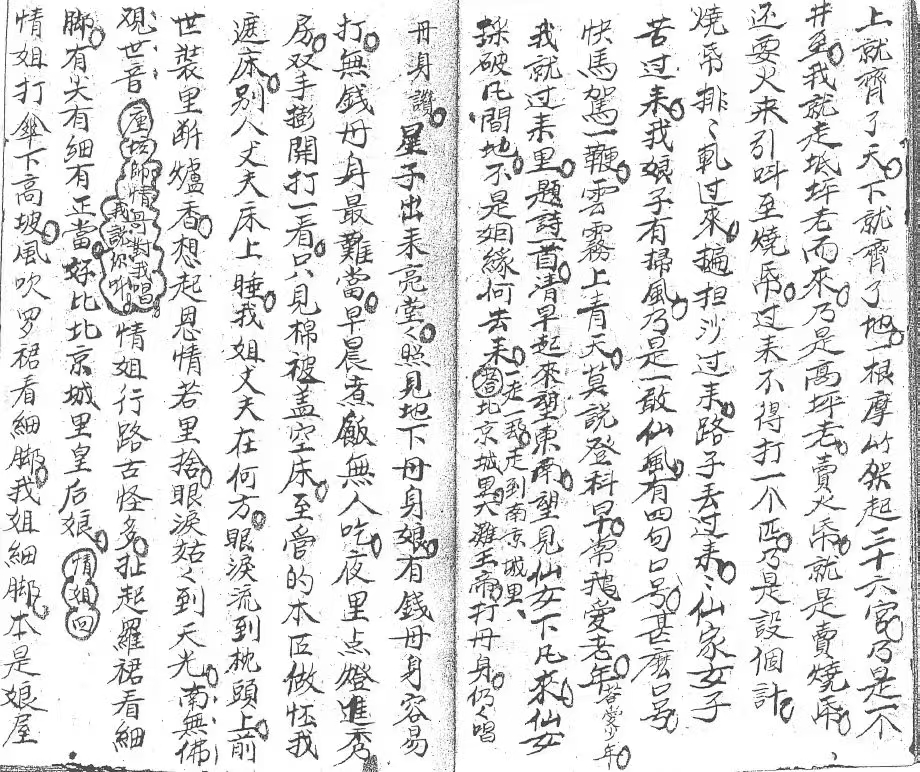 上就齊了天下就齊了地一根摩竹架起三十六宮乃是一个
井至我就走坻坪老而來乃是高坪老賣火帋就是賣燒帋
还要火来引叫至燒帋过来不得打一个匹乃是設個計
燒帋排〻軋过來担沙过来路子丢过来〻仙家女子
苦过来我娘子有掃風乃是一敢仙風有四句口号甚麽口号
快馬駕一鞭雲霧上青天莫說登科早常愛老年答愛少年
我就过来里題詩一首清早起來望東南望見仙女下凡來仙女
踩破凡間地不是姻緣何去来一走一走到南京城里
北京城里大灘王帝打丹身仍〻唱
丹身讃星子出来亮堂〻照見地下丹身娘有錢丹身容易
打無錢丹身最難當早晨煮飯無人吃夜里点燈進秀
房双手膨開打一看只見棉被盖空床至雪的本匠做怪我
遮床別人丈夫床上睡我姐丈夫在何方眼淚流到枕頭上前
世裝里断爐香想起恩情若里捨眼淚姑〻到天光南無佛
观世音
師情哥對我唱我說你听
情姐行路古怪多扯起羅裙看細
脚有大有細有正當好比北京城里皇后娘情姐回
情姐打傘下高坡風吹罗裙看細脚我姐細脚本是娘屋